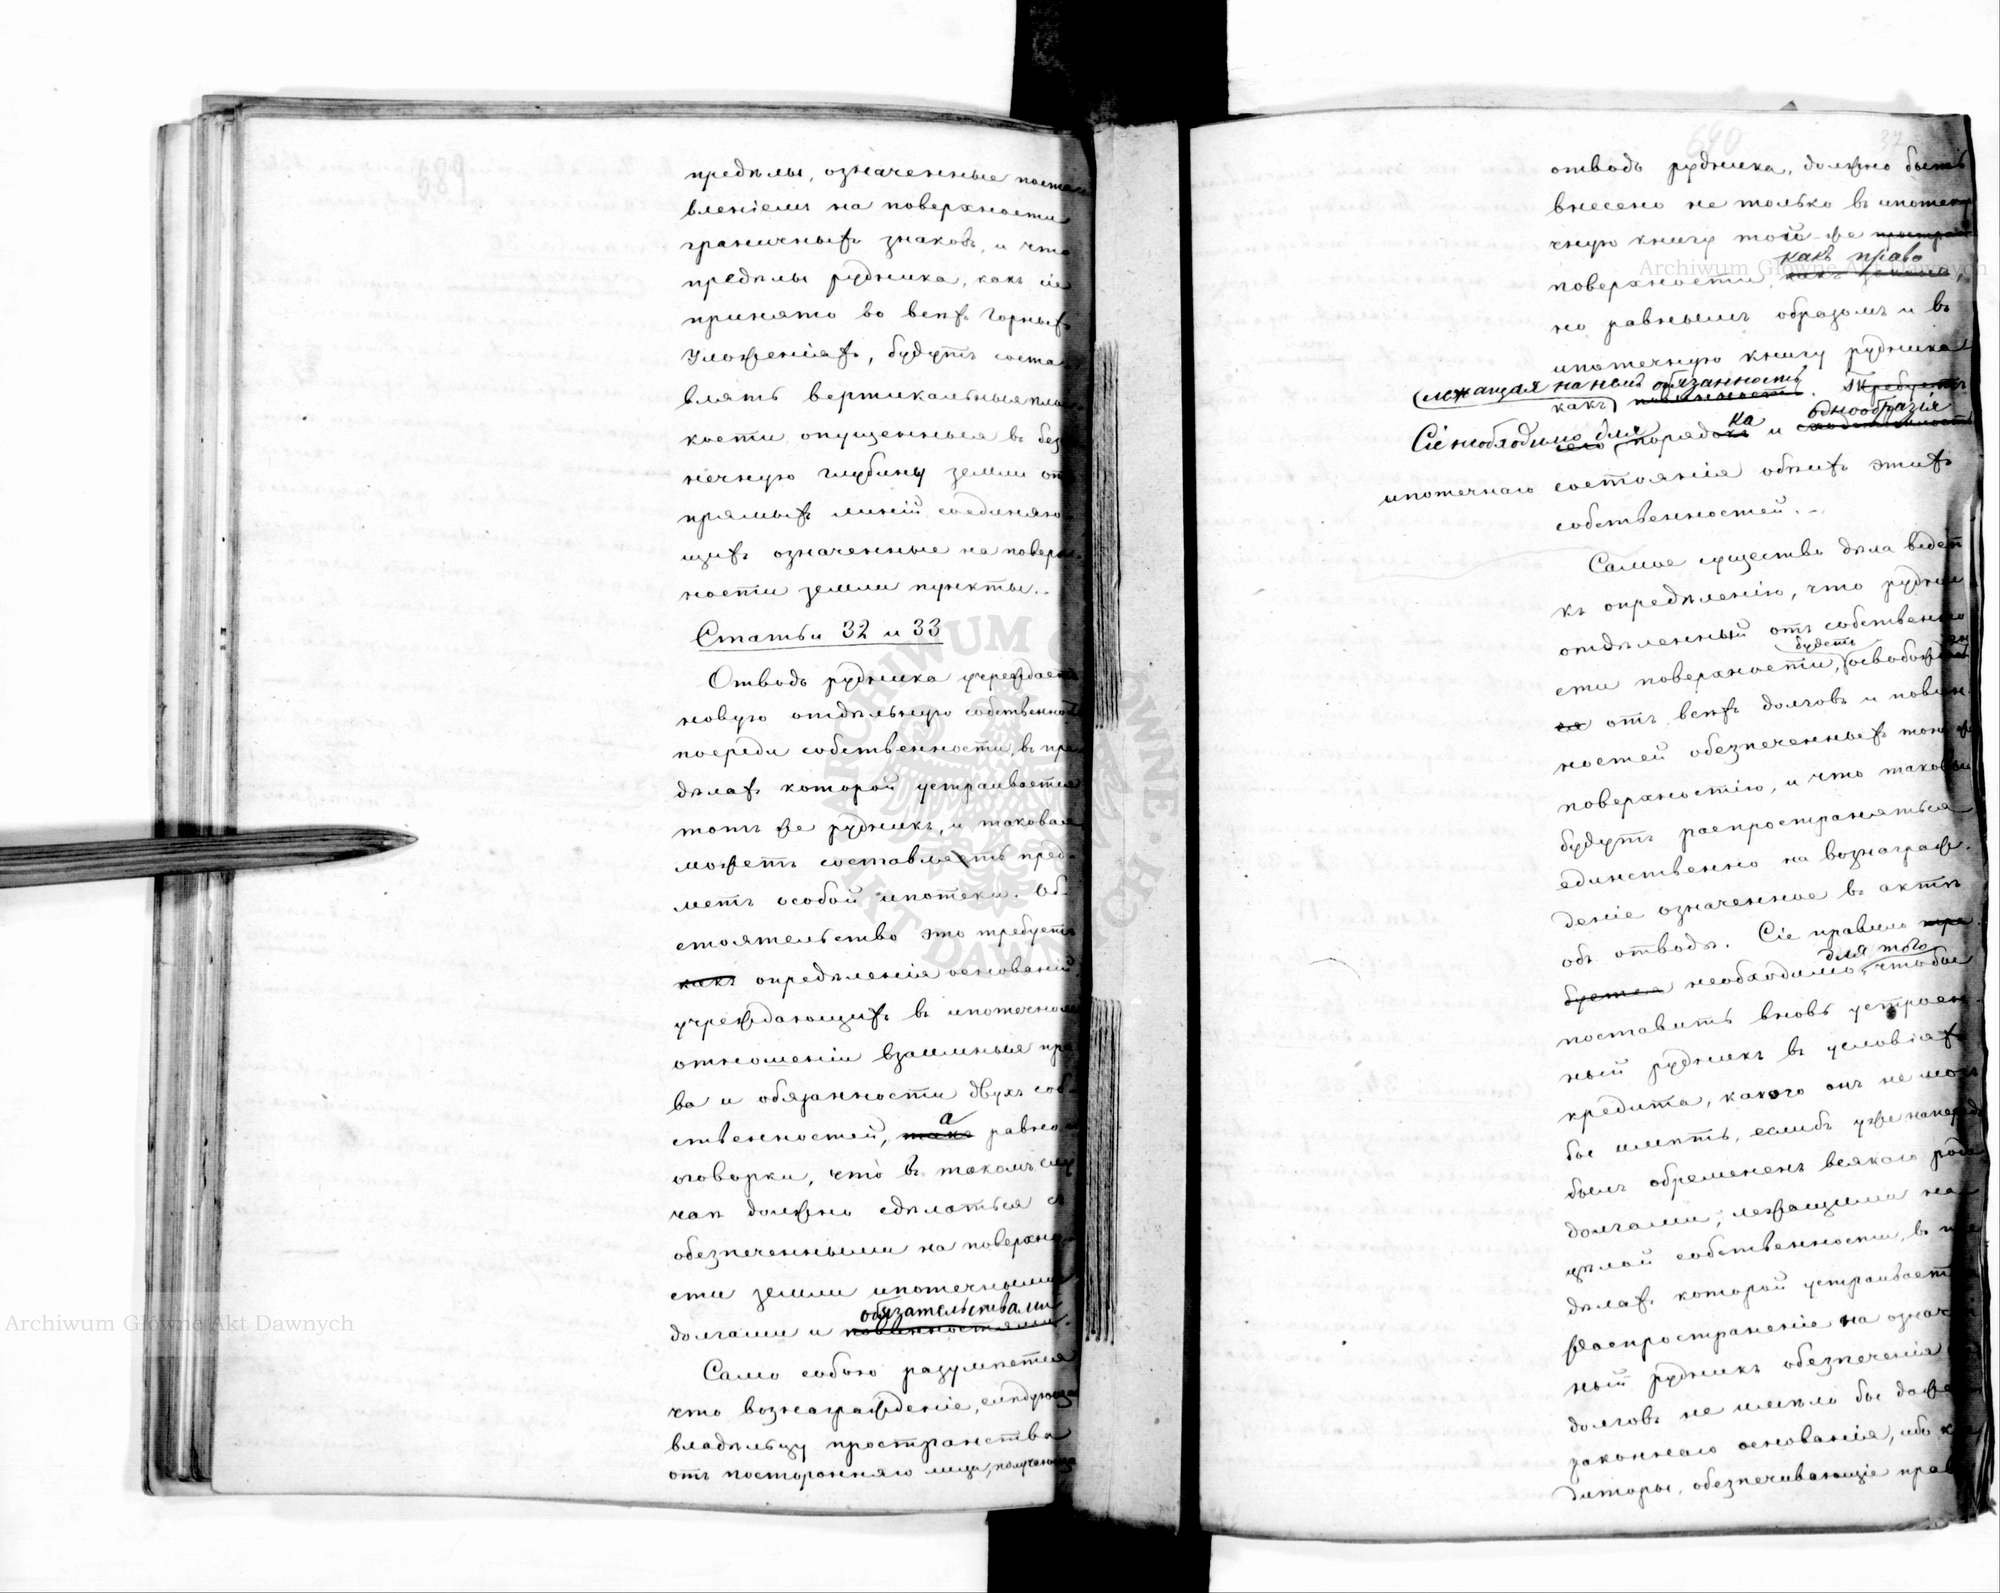 предѣлы, означенные постано
вленіемъ на поверхности
граничныхъ знаковъ, и что
предѣлы рудника, какъ сіе
принято во всѣхъ Горныхъ
Уложеніяхъ, будутъ соста
влять вертикальныя плос
кости опущенныя въ без
нечную глубину земли отъ
прямыхъ линій соединяю
щихъ означенные на поверх
ности земли пункты..
Статьи 32 и 33
Отводъ рудника учреждаетъ
новую отдѣльную собственность
посреди собственности, въ пре
дѣлахъ которой устраивается
тотъ же рудникъ, и таковая
можетъ составлять пред-
метъ особой ипотеки. Об-
стоятельство это требуетъ
какъ опредѣленія основаній
учреждающихъ въ ипотечномъ
отношеніи взаимныя пра
ва и обязанности двухъ соб-
ственностей, а равно
оговорки, что въ такомъ слу
чаѣ должно сдѣлаться съ
обезпеченными на поверхно-
сти земли ипотечными
обязательствами
долгами и повинностями.
Само собою разумѣется
что вознагражденіе, слѣдующее
владѣльцу пространства
отъ посторонняго лица, получающа
Archiwum Główne Akt Dawnych
640
37
отводъ рудника, должно быть
внесено не только въ ипотеч
чную книгу той-же простран
какъ право
поверхности,
но равнымъ образомъ и въ
ипотечную книгу рудника
лежащая на немъ обязанность
какъ повинность. Требуетъ
однообразія
Сіе необходимо для сего порядка и
ипотечнаго состоянія обѣихъ этихъ
собственностей. -
Самое существо дѣла ведетъ
къ опредѣленію, что рудник
отдѣленный отъ собственно
будетъ
сти поверхности, освобожден
ся отъ всѣхъ долговъ и повин-
ностей обезпеченныхъ тою же
поверхностію, и что таковыя
будутъ распространяться
единственно на вознаграж-
деніе означенное въ актѣ
объ отводѣ. Сіе правило тре
для того
буется необходимо, чтобы
поставить вновь устроен-
ный рудникъ въ условіяхъ
кредита, какого онъ не могъ
бы имѣть, еслибъ уже напередъ
былъ обремененъ всякаго рода
долгами, лежащими на
цѣлой собственности, въ пре
дѣлахъ которой устраивает
Распространеніе на означ
ный рудникъ обезпеченія
долговъ не имѣло бы даже
законнаго основанія, ибо кре
диторы, обезпечивающіе прав
Archiwum Główne Akt Dawnych
ARCHIWUM GŁÓWNE AKT DAWNYCH